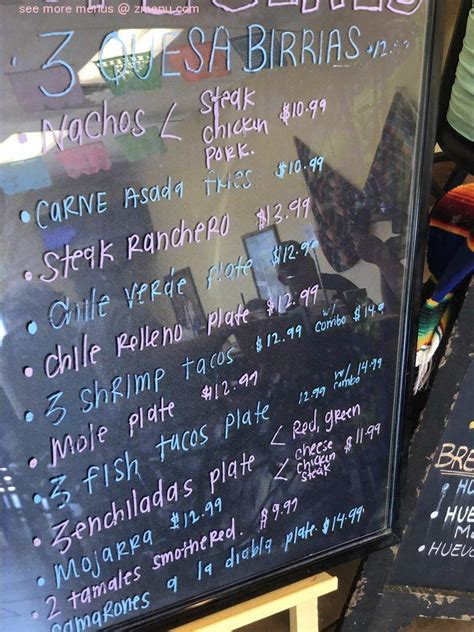 see more menus @ zmenu.com
3 QUESABIRRIAS $12.
• Nachos < Steak chicken PORK. $10.99
• CARNE Asada fries $10.99
• Steak Ranchero $13.99
• Chile verde plate $12.99
• Chile Relleno plate $12.99
• 3 shrimp tacos $12.99 w/ combo $14.9
• Mole plate $12.99
• 3 fish tacos plate 12.99 w/ combo 14.99
• 3 enchiladas plate < Red, green < cheese chicken steak $11.99
• Mojarra $12.99
• 2 tamales smothered. $9.99
• Camarones a la diabla plate $14.99
BRE
• HU
• HUEV
M
• HUEVO